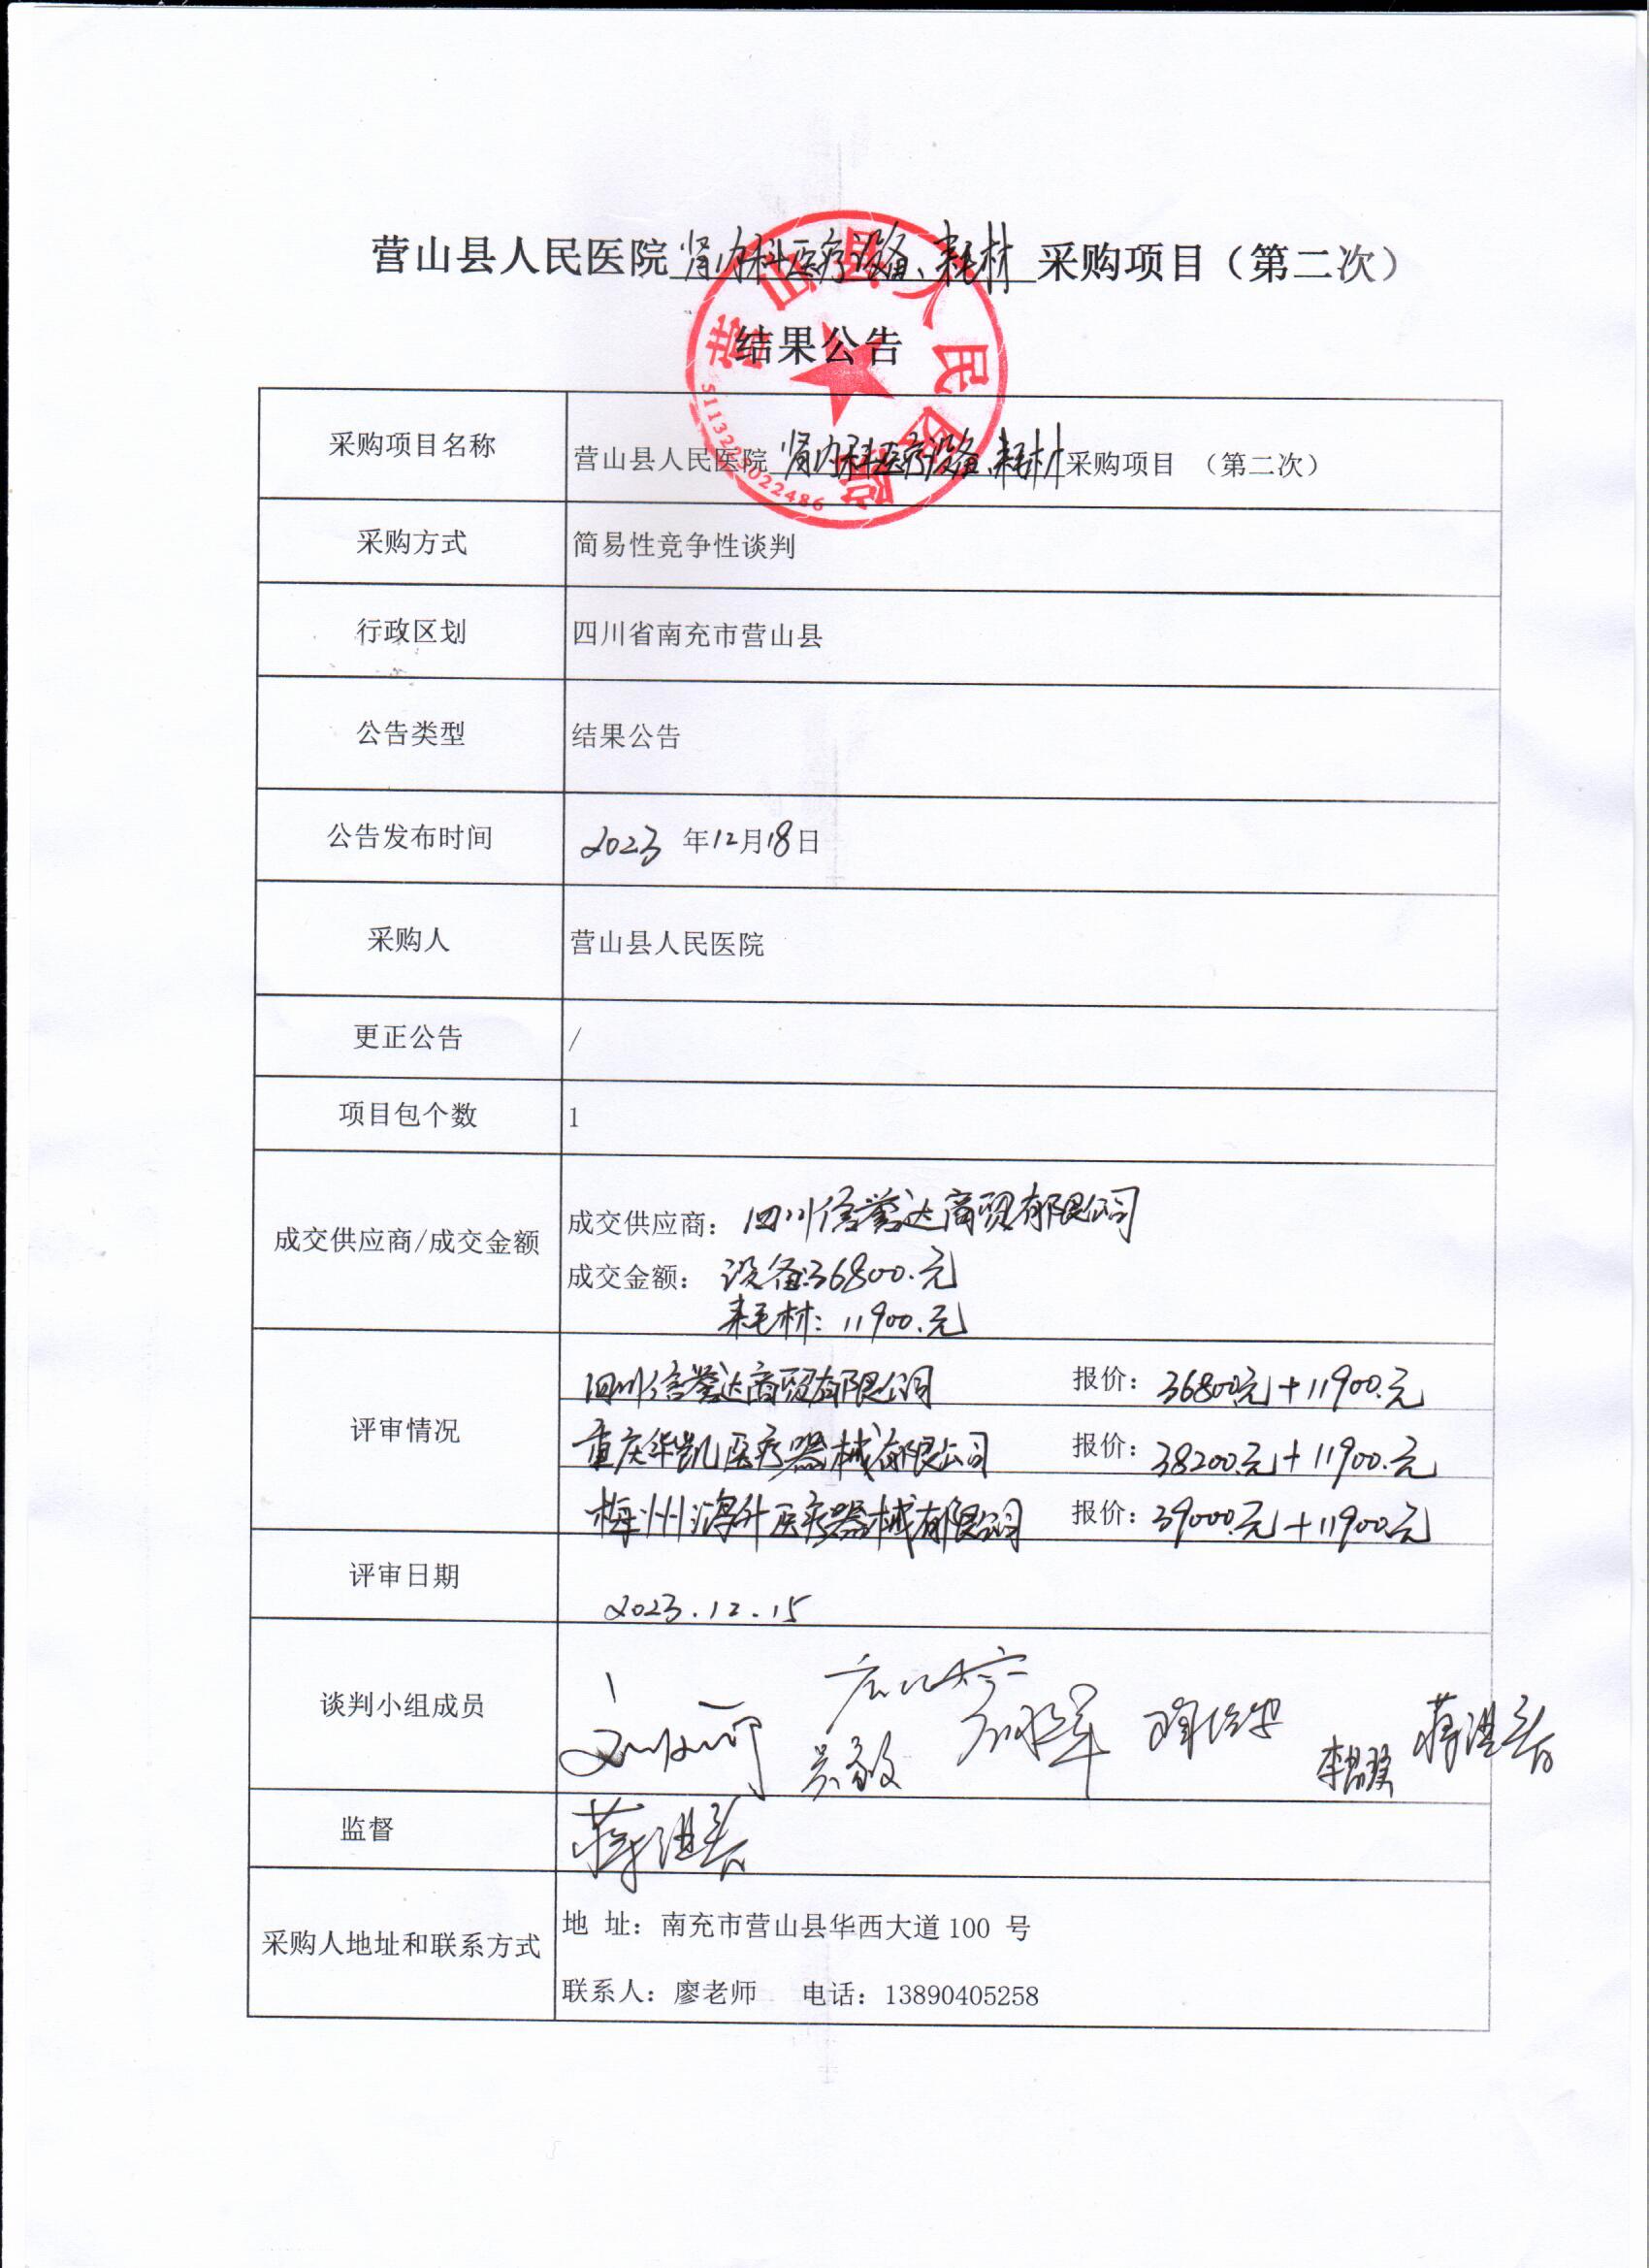 营山县人民医院肾内科医疗设备、耗材采购项目（第二次）
结果公告
营山县人民医院
5113225022486
采购项目名称
营山县人民医院肾内科医疗设备、耗材采购项目 （第二次）
采购方式
简易性竞争性谈判
行政区划
四川省南充市营山县
公告类型
结果公告
公告发布时间
2023 年12月18日
采购人
营山县人民医院
更正公告
/
项目包个数
1
成交供应商/成交金额
成交供应商：四川信誉达商贸有限公司
成交金额：设备:36800.元
耗材：11900.元
评审情况
四川信誉达商贸有限公司 报价：36800元+11900.元
重庆华凯医疗器械有限公司 报价：38200.元+11900.元
梅州 医疗器械有限公司 报价：39000.元+11900.元
评审日期
2023.12.15
谈判小组成员
监督
采购人地址和联系方式
地 址：南充市营山县华西大道100 号
联系人：廖老师 电话：13890405258